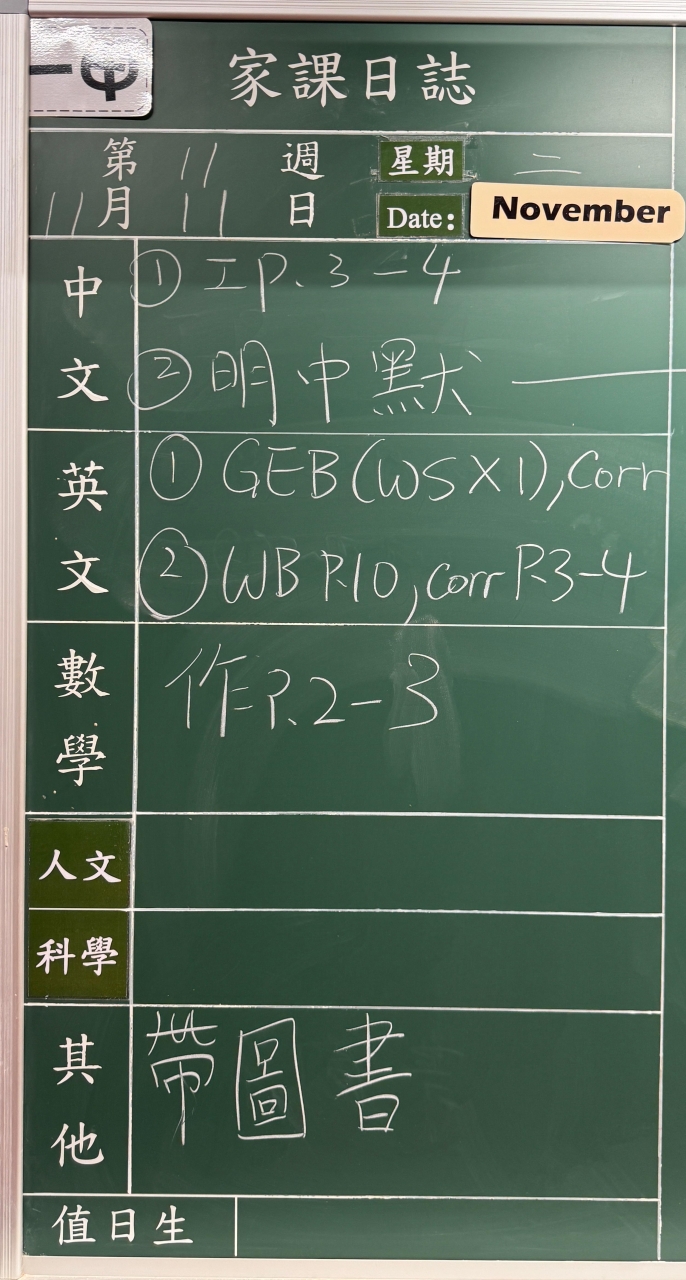 一甲
家課日誌
第 11 週 星期 二
11月 11 日 Date: November
中文
① 工P.3-4
② 明中默
英文
① GEB(WS×1), Corr
② WB P.10, corr P.3-4
數學
作P.2-3
人文
科學
其他
帶圖書
值日生